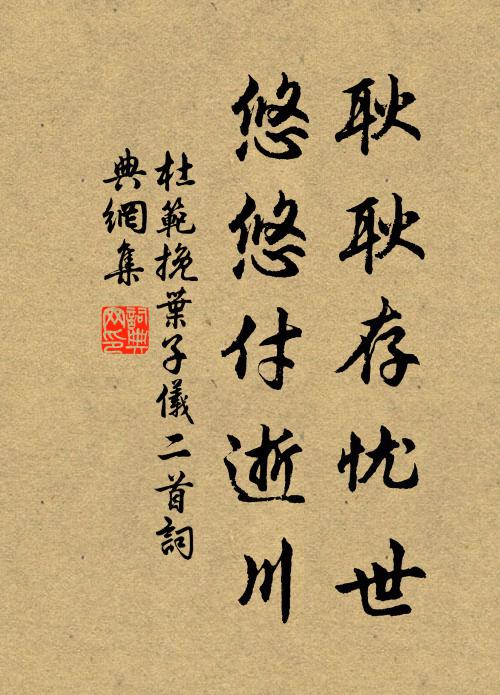 耿耿存忧世
悠悠付逝川
杜範挽葉子儀二首詞
典網集
詞典网印